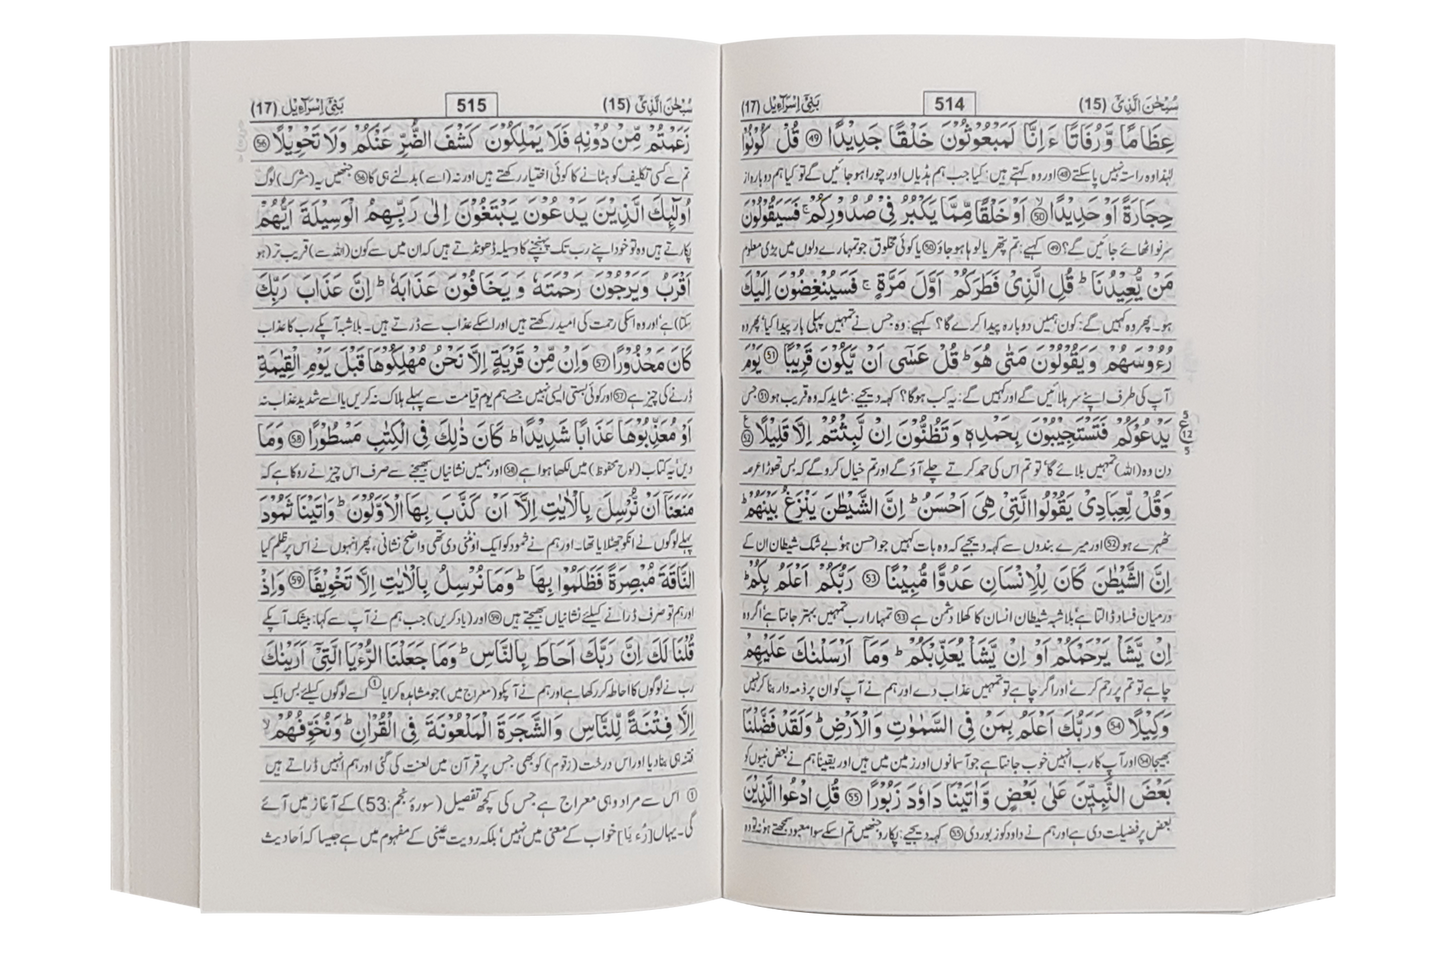 سُبْحٰنَ الَّذِیْ (15) 514 بَنِیْ اِسْرَآءِیْل (17)
عِظَامًا وَّرُفَاتًا ءَاِنَّا لَمَبْعُوْثُوْنَ خَلْقًا جَدِیْدًا ﴿49﴾ قُلْ كُوْنُوْا
لہٰذا وہ راستہ نہیں پا سکتے ﴿48﴾ اور وہ کہتے ہیں: کیا جب ہم ہڈیاں اور چورا ہو جائیں گے تو کیا ہم دوبارہ از
حِجَارَةً اَوْ حَدِیْدًا ﴿50﴾ اَوْ خَلْقًا مِّمَّا یَكْبُرُ فِیْ صُدُوْرِكُمْ ۚ فَسَیَقُوْلُوْنَ
سر نو اٹھائے جائیں گے؟ ﴿49﴾ کہیے: تم پتھر یا لوہا ہو جاؤ ﴿50﴾ یا کوئی مخلوق جو تمہارے دلوں میں بڑی معلوم
مَنْ یُّعِیْدُنَا ؕ قُلِ الَّذِیْ فَطَرَكُمْ اَوَّلَ مَرَّةٍ ۚ فَسَیُنْغِضُوْنَ اِلَیْكَ
ہو۔ پھر وہ کہیں گے: کون ہمیں دوبارہ پیدا کرے گا؟ کہیے: وہ جس نے تمہیں پہلی بار پیدا کیا' پھر وہ
رُءُوْسَهُمْ وَیَقُوْلُوْنَ مَتٰی هُوَ ؕ قُلْ عَسٰۤی اَنْ یَّكُوْنَ قَرِیْبًا ﴿51﴾ یَوْمَ
آپ کی طرف اپنے سر ہلائیں گے اور کہیں گے: یہ کب ہوگا؟ کہہ دیجیے: شاید کہ وہ قریب ہو ﴿51﴾ جس
یَدْعُوْكُمْ فَتَسْتَجِیْبُوْنَ بِحَمْدِهٖ وَتَظُنُّوْنَ اِنْ لَّبِثْتُمْ اِلَّا قَلِیْلًا ﴿52﴾ 5 ع 12 5
دن وہ (اللہ) تمہیں بلائے گا' تو تم اس کی حمد کرتے چلے آؤ گے اور تم خیال کرو گے کہ بس تھوڑا عرصہ
وَقُلْ لِّعِبَادِیْ یَقُوْلُوا الَّتِیْ هِیَ اَحْسَنُ ؕ اِنَّ الشَّیْطٰنَ یَنْزَغُ بَیْنَهُمْ ؕ
ٹھہرے ہو ﴿52﴾ اور میرے بندوں سے کہہ دیجیے کہ وہ بات کہیں جو احسن ہو' بے شک شیطان ان کے
اِنَّ الشَّیْطٰنَ كَانَ لِلْاِنْسَانِ عَدُوًّا مُّبِیْنًا ﴿53﴾ رَبُّكُمْ اَعْلَمُ بِكُمْ ؕ
درمیان فساد ڈالتا ہے' بلاشبہ شیطان انسان کا کھلا دشمن ہے ﴿53﴾ تمہارا رب تمہیں بہتر جانتا ہے' اگر وہ
اِنْ یَّشَاْ یَرْحَمْكُمْ اَوْ اِنْ یَّشَاْ یُعَذِّبْكُمْ ؕ وَمَاۤ اَرْسَلْنٰكَ عَلَیْهِمْ
چاہے تو تم پر رحم کرے' اور اگر چاہے تو تمہیں عذاب دے اور ہم نے آپ کو ان پر ذمہ دار بنا کر نہیں
وَكِیْلًا ﴿54﴾ وَرَبُّكَ اَعْلَمُ بِمَنْ فِی السَّمٰوٰتِ وَالْاَرْضِ ؕ وَلَقَدْ فَضَّلْنَا
بھیجا ﴿54﴾ اور آپ کا رب انہیں خوب جانتا ہے جو آسمانوں اور زمین میں ہیں اور یقیناً ہم نے بعض نبیوں کو
بَعْضَ النَّبِیّٖنَ عَلٰی بَعْضٍ وَّاٰتَیْنَا دَاوٗدَ زَبُوْرًا ﴿55﴾ قُلِ ادْعُوا الَّذِیْنَ
بعض پر فضیلت دی ہے اور ہم نے داود کو زبور دی ﴿55﴾ کہہ دیجیے: پکارو جنھیں تم اسکے سوا معبود سمجھتے ہو' تو وہ
سُبْحٰنَ الَّذِیْ (15) 515 بَنِیْ اِسْرَآءِیْل (17)
زَعَمْتُمْ مِّنْ دُوْنِهٖ فَلَا یَمْلِكُوْنَ كَشْفَ الضُّرِّ عَنْكُمْ وَلَا تَحْوِیْلًا ﴿56﴾
تم سے کسی تکلیف کو ہٹانے کا کوئی اختیار رکھتے ہیں اور نہ (اسے) بدلنے ہی کا ﴿56﴾ جنھیں یہ (مشرک) لوگ
اُولٰٓىِٕكَ الَّذِیْنَ یَدْعُوْنَ یَبْتَغُوْنَ اِلٰی رَبِّهِمُ الْوَسِیْلَةَ اَیُّهُمْ
پکارتے ہیں وہ تو خود اپنے رب تک پہنچنے کا وسیلہ ڈھونڈتے ہیں کہ ان میں سے کون (اللہ سے) قریب تر (ہو
اَقْرَبُ وَیَرْجُوْنَ رَحْمَتَهٗ وَیَخَافُوْنَ عَذَابَهٗ ؕ اِنَّ عَذَابَ رَبِّكَ
سکتا) ہے' اور وہ اسکی رحمت کی امید رکھتے ہیں اور اسکے عذاب سے ڈرتے ہیں۔ بلاشبہ آپکے رب کا عذاب
كَانَ مَحْذُوْرًا ﴿57﴾ وَاِنْ مِّنْ قَرْیَةٍ اِلَّا نَحْنُ مُهْلِكُوْهَا قَبْلَ یَوْمِ الْقِیٰمَةِ
ڈرنے کی چیز ہے ﴿57﴾ اور کوئی بستی ایسی نہیں جسے ہم یوم قیامت سے پہلے ہلاک نہ کریں یا اسے شدید عذاب نہ
اَوْ مُعَذِّبُوْهَا عَذَابًا شَدِیْدًا ؕ كَانَ ذٰلِكَ فِی الْكِتٰبِ مَسْطُوْرًا ﴿58﴾ وَمَا
دیں' یہ کتاب (لوح محفوظ) میں لکھا ہوا ہے ﴿58﴾ اور ہمیں نشانیاں بھیجنے سے صرف اس چیز نے روکا ہے کہ
مَنَعَنَاۤ اَنْ نُّرْسِلَ بِالْاٰیٰتِ اِلَّاۤ اَنْ كَذَّبَ بِهَا الْاَوَّلُوْنَ ؕ وَاٰتَیْنَا ثَمُوْدَ
پہلے لوگوں نے انکو جھٹلایا تھا۔ اور ہم نے ثمود کو ایک اونٹنی دی تھی واضح نشانی، پھر انہوں نے اس پر ظلم کیا
النَّاقَةَ مُبْصِرَةً فَظَلَمُوْا بِهَا ؕ وَمَا نُرْسِلُ بِالْاٰیٰتِ اِلَّا تَخْوِیْفًا ﴿59﴾ وَاِذْ
اور ہم تو صرف ڈرانے کیلئے نشانیاں بھیجتے ہیں ﴿59﴾ اور (یاد کریں) جب ہم نے آپ سے کہا: بیشک آپکے
قُلْنَا لَكَ اِنَّ رَبَّكَ اَحَاطَ بِالنَّاسِ ؕ وَمَا جَعَلْنَا الرُّءْیَا الَّتِیْۤ اَرَیْنٰكَ
رب نے لوگوں کا احاطہ کر رکھا ہے اور ہم نے آپکو (معراج میں) جو مشاہدہ کرایا ① اسے لوگوں کیلئے بس ایک
اِلَّا فِتْنَةً لِّلنَّاسِ وَالشَّجَرَةَ الْمَلْعُوْنَةَ فِی الْقُرْاٰنِ ؕ وَنُخَوِّفُهُمْ ۙ
فتنہ ہی بنا دیا اور اس درخت (زقوم) کو بھی جس پر قرآن میں لعنت کی گئی اور ہم انہیں ڈراتے ہیں
① اس سے مراد وہی معراج ہے جس کی کچھ تفصیل (سورۂ نجم: 53) کے آغاز میں آئے
گی۔ یہاں [رُءْیَا] خواب کے معنی میں نہیں' بلکہ رویت عینی کے مفہوم میں ہے جیسا کہ احادیث